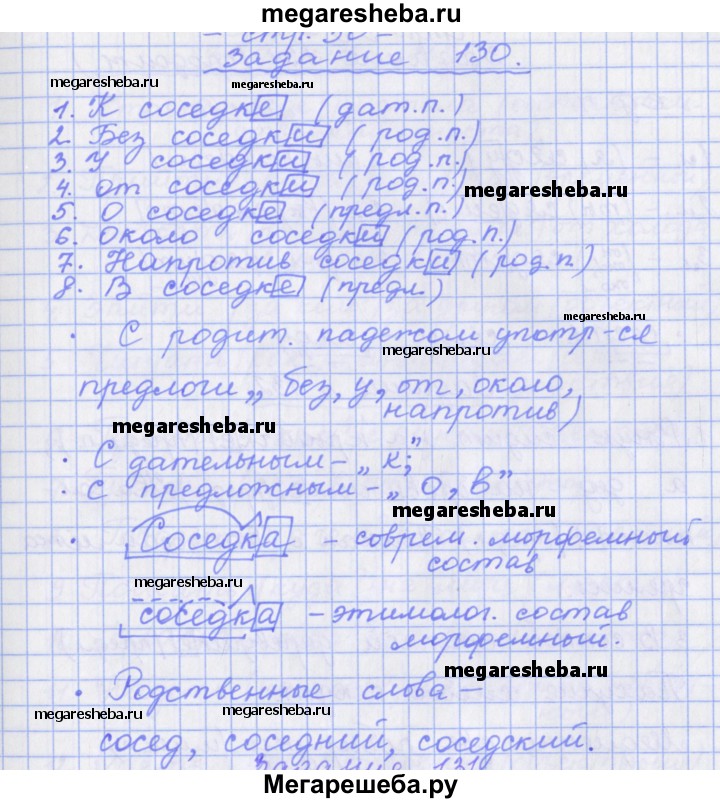 megaresheba.ru
- стр. 50 -
Задание 130.
megaresheba.ru
megaresheba.ru
1. К соседке (дат.п.)
2. Без соседки (род.п.)
3. У соседки (род.п.)
4. от соседки (род.п.)
megaresheba.ru
5. О соседке (предл.п.)
6. Около соседки (род.п.)
7. Напротив соседки (род.п.)
8. В соседке (предл.)
megaresheba.ru
· С родит. падежом употр-ся
megaresheba.ru
предлоги „ без, у, от, около,
напротив)
megaresheba.ru
· С дательным - „ к;"
· С предложным - „ О, в"
megaresheba.ru
· Соседка - соврем. морфемный
состав
megaresheba.ru
соседка - этимолог. состав
морфемный.
megaresheba.ru
· Родственные слова -
megaresheba.ru
megaresheba.ru
сосед, соседний, соседский.
Задание 131
Мегарешеба.ру